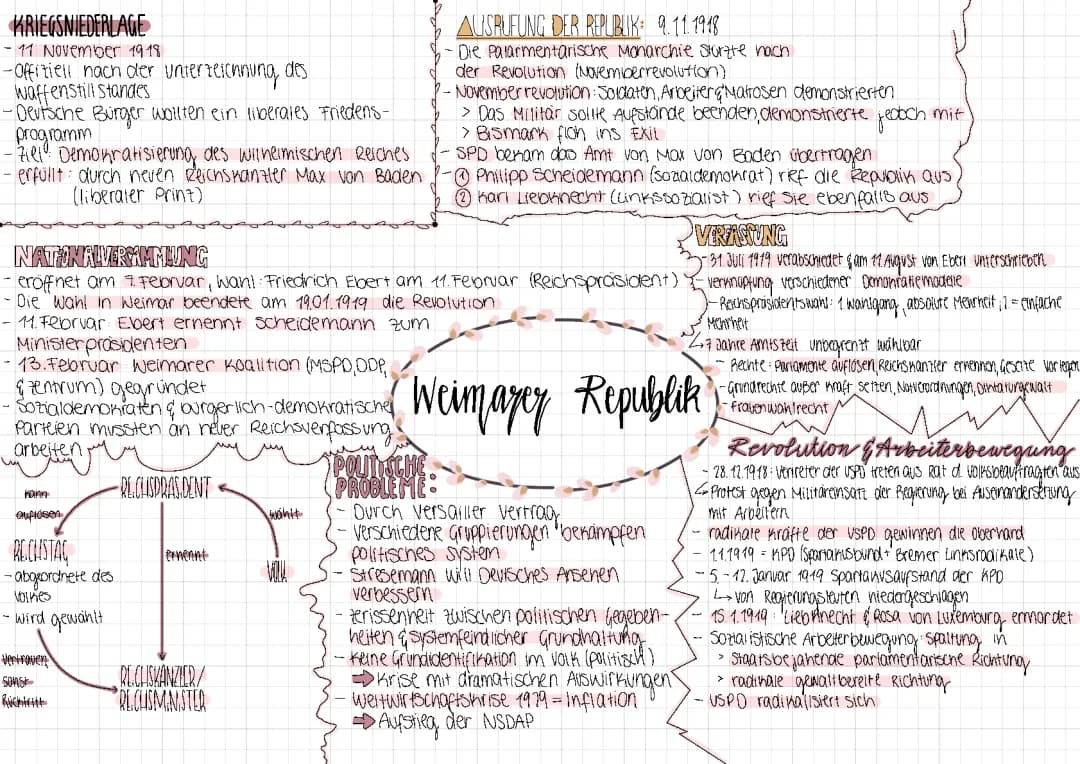 KRIEGSNIEDERLAGE
- 11 November 1918
- Offiziell nach der Unterzeichnung des
Waffenstillstandes
- Deutsche Bürger wollten ein liberales Friedens-
programm
- Ziel: Demokratisierung des Wilhelmischen Reiches
- erfüllt: durch neuen Reichskanzler Max von Baden
(liberaler Prinz)
AUSRUFUNG DER REPUBLIK: 9.11.1918
- Die Palarmentarische Monarchie stürzte nach
der Revolution (Novemberrevolution)
- Novemberrevolution: Soldaten, Arbeiter & Matrosen demonstrierten
> Das Militär sollte Aufstände beenden, demonstrierte jedoch mit
> Bismark floh ins Exil
- SPD bekam das Amt von Max von Baden übertragen
- ① Philipp Scheidemann (Sozialdemokrat) rief die Republik aus
② Karl Liebknecht (Linkssozialist) rief Sie ebenfalls aus
NATIONALVERSAMMLUNG
- eröffnet am 7. Februar, Wahl: Friedrich Ebert am 11. Februar (Reichspräsident)
- Die Wahl in Weimar beendete am 19.01.1919 die Revolution
- 11. Februar Ebert ernennt Scheidemann zum
Ministerpräsidenten
- 13. Februar Weimarer Koalition (MSPD, DDP,
& Zentrum) gegründet
- Sozialdemokraten & bürgerlich-demokratische
Parteien mussten an neuer Reichsverfassung
arbeiten
VERFASSUNG
- 31. Juli 1919 verabschiedet & am 11. August von Ebert unterschrieben
- Verknüpfung verschiedener Demokratiemodelle
- Reichspräsidentswahl: 1 Wahlgang, absolute Mehrheit; 2 = einfache
Mehrheit
↳ 7 Jahre Amtszeit unbegrenzt wählbar
- Rechte: Parlamente auflösen, Reichskanzler ernennen, Gesetze vorlegen
- Grundrechte außer Kraft setzen, Notverordnungen, Diktaturgewalt
- Frauenwahlrecht
Weimarer Republik
REICHSPRÄSIDENT
kann
auflösen
wählt
REICHSTAG
- abgeordnete des
Volkes
- wird gewählt
ernennt
VOLK
Vertrauen,
sonst
Rücktritt
REICHSKANZLER/
REICHSMINISTER
POLITISCHE
PROBLEME:
- Durch Versailler Vertrag
- Verschiedene Gruppierungen bekämpfen
politisches System
- Stresemann will Deutsches Ansehen
verbessern
- Zerissenheit zwischen politischen Gegeben-
heiten & Systemfeindlicher Grundhaltung
- Keine Grundidentifikation im Volk (politisch)
⇒ Krise mit dramatischen Auswirkungen
- Weltwirtschaftskrise 1929 = Inflation
⇒ Aufstieg der NSDAP
Revolution & Arbeiterbewegung
- 28.12.1918: Vertreter der USPD treten aus Rat d. Volksbeauftragten aus
↳ Protest gegen Militäreinsatz der Regierung bei Auseinandersetzung
mit Arbeitern
- radikale Kräfte der USPD gewinnen die Oberhand
- 1.1.1919 = KPD (Spartakusbund + Bremer Linksradikale)
- 5. - 12. Januar 1919 Spartakusaufstand der KPD
↳ von Regierungsleuten niedergeschlagen
- 15.1.1919: Liebknecht & Rosa von Luxemburg ermordet
- Sozialistische Arbeiterbewegung: Spaltung in
> Staatsbejahende parlamentarische Richtung
> radikale gewaltbereite Richtung
- USPD radikalisiert sich